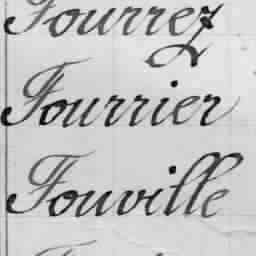 Fourrez
Fourrier
Fouville